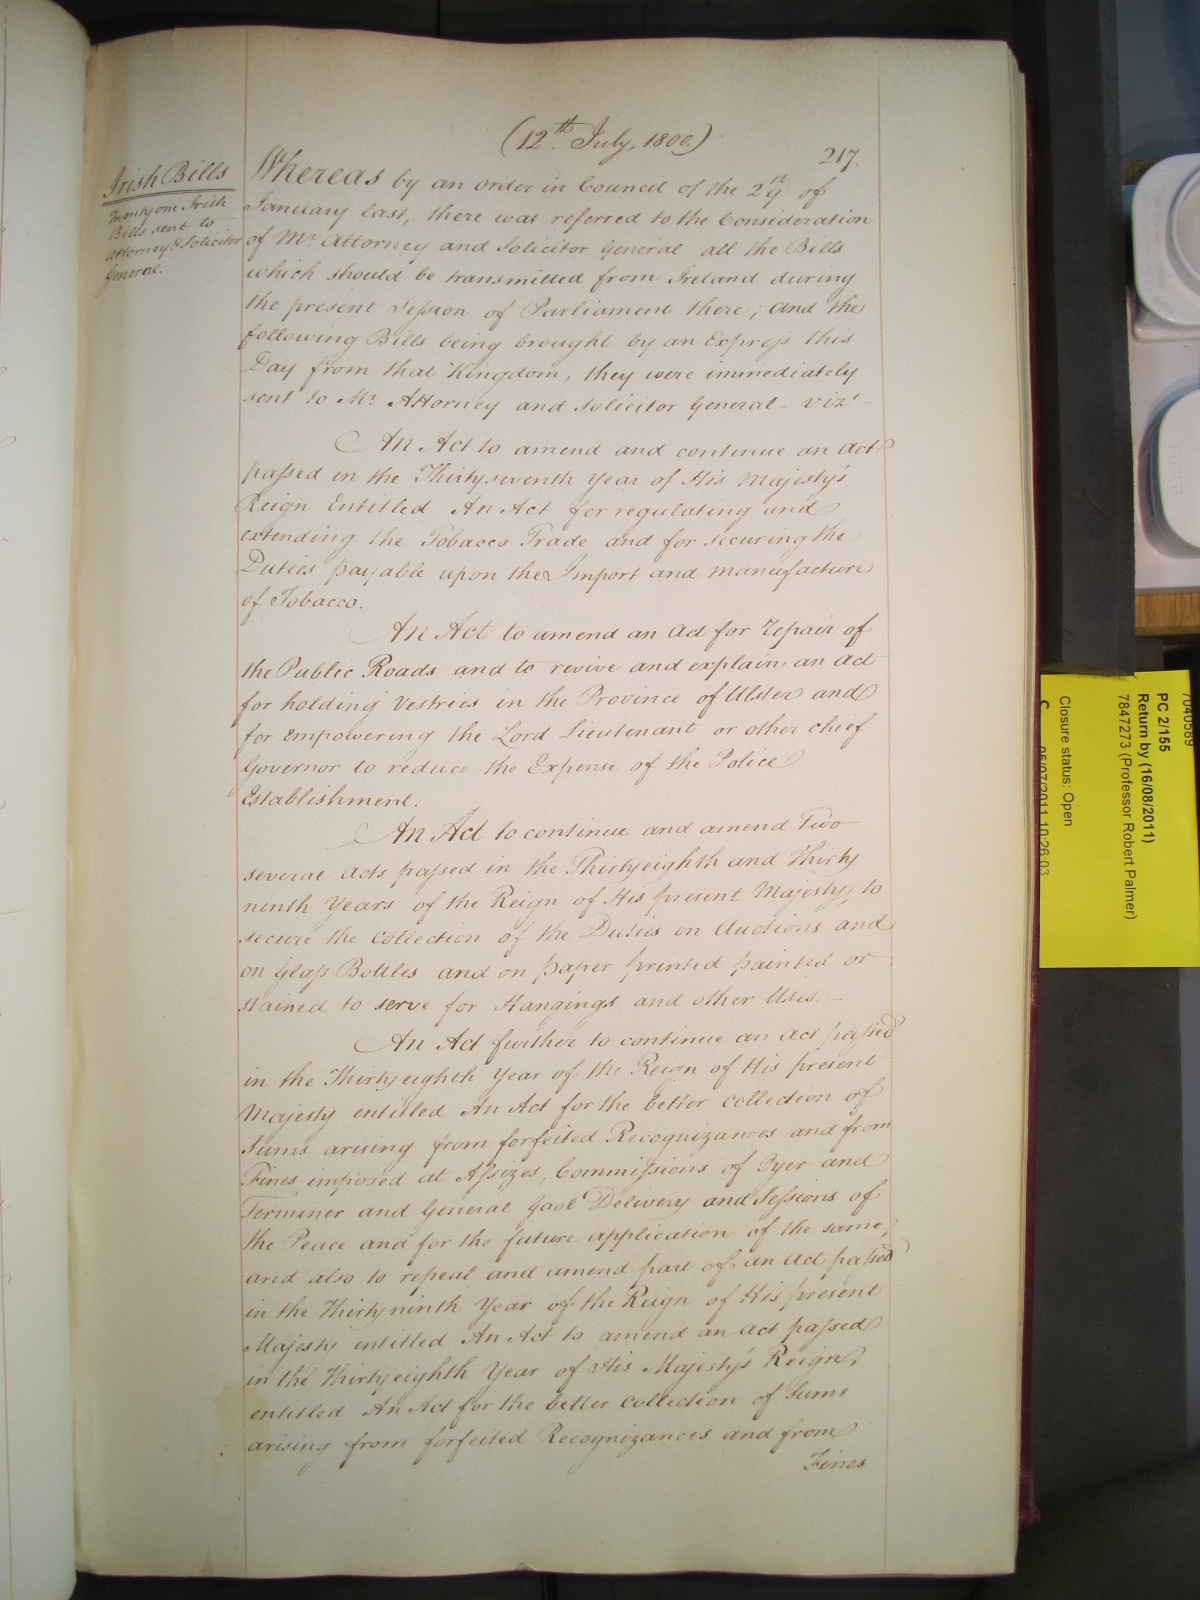 (12th July, 1800.)
217.
Irish Bills
Twenty one Irish
Bills sent to
Attorney & Solicitor
General.
Whereas by an order in Council of the 29th of
January last, there was referred to the Consideration
of Mr. Attorney and Solicitor General all the Bills
which should be transmitted from Ireland during
the present Session of Parliament there; and the
following Bills being brought by an Express this
Day from that Kingdom, they were immediately
sent to Mr. Attorney and Solicitor General - vizt. -
An Act to amend and continue an Act
passed in the Thirty seventh Year of His Majesty's
Reign Entitled An Act for regulating and
extending the Tobacco Trade and for securing the
Duties payable upon the Import and manufacture
of Tobacco.
An Act to amend an Act for Repair of
the Public Roads and to revive and explain an Act
for holding Vestries in the Province of Ulster and
for Empowering the Lord Lieutenant or other chief
Governor to reduce the Expense of the Police
Establishment.
An Act to continue and amend Two
several Acts passed in the Thirty eighth and Thirty
ninth Years of the Reign of His present Majesty, to
secure the Collection of the Duties on Auctions and
on Glass Bottles and on paper printed painted or
stained to serve for Hangings and other Uses. -
An Act further to continue an Act passed
in the Thirty eighth Year of the Reign of His present
Majesty entitled An Act for the better collection of
Sums arising from forfeited Recognizances and from
Fines imposed at Assizes, Commissions of Oyer and
Terminer and General Gaol Delivery and Sessions of
the Peace and for the future application of the same,
and also to repeal and amend part of an Act passed
in the Thirty ninth Year of the Reign of His present
Majesty entitled An Act to amend an Act passed
in the Thirty eighth Year of His Majesty's Reign,
entitled An Act for the better collection of Sums
arising from forfeited Recognizances and from
Fines
7040589
PC 2/155
Return by (16/08/2011)
7847273 (Professor Robert Palmer)
Closure status: Open
C
05/07/2011 10:26:03